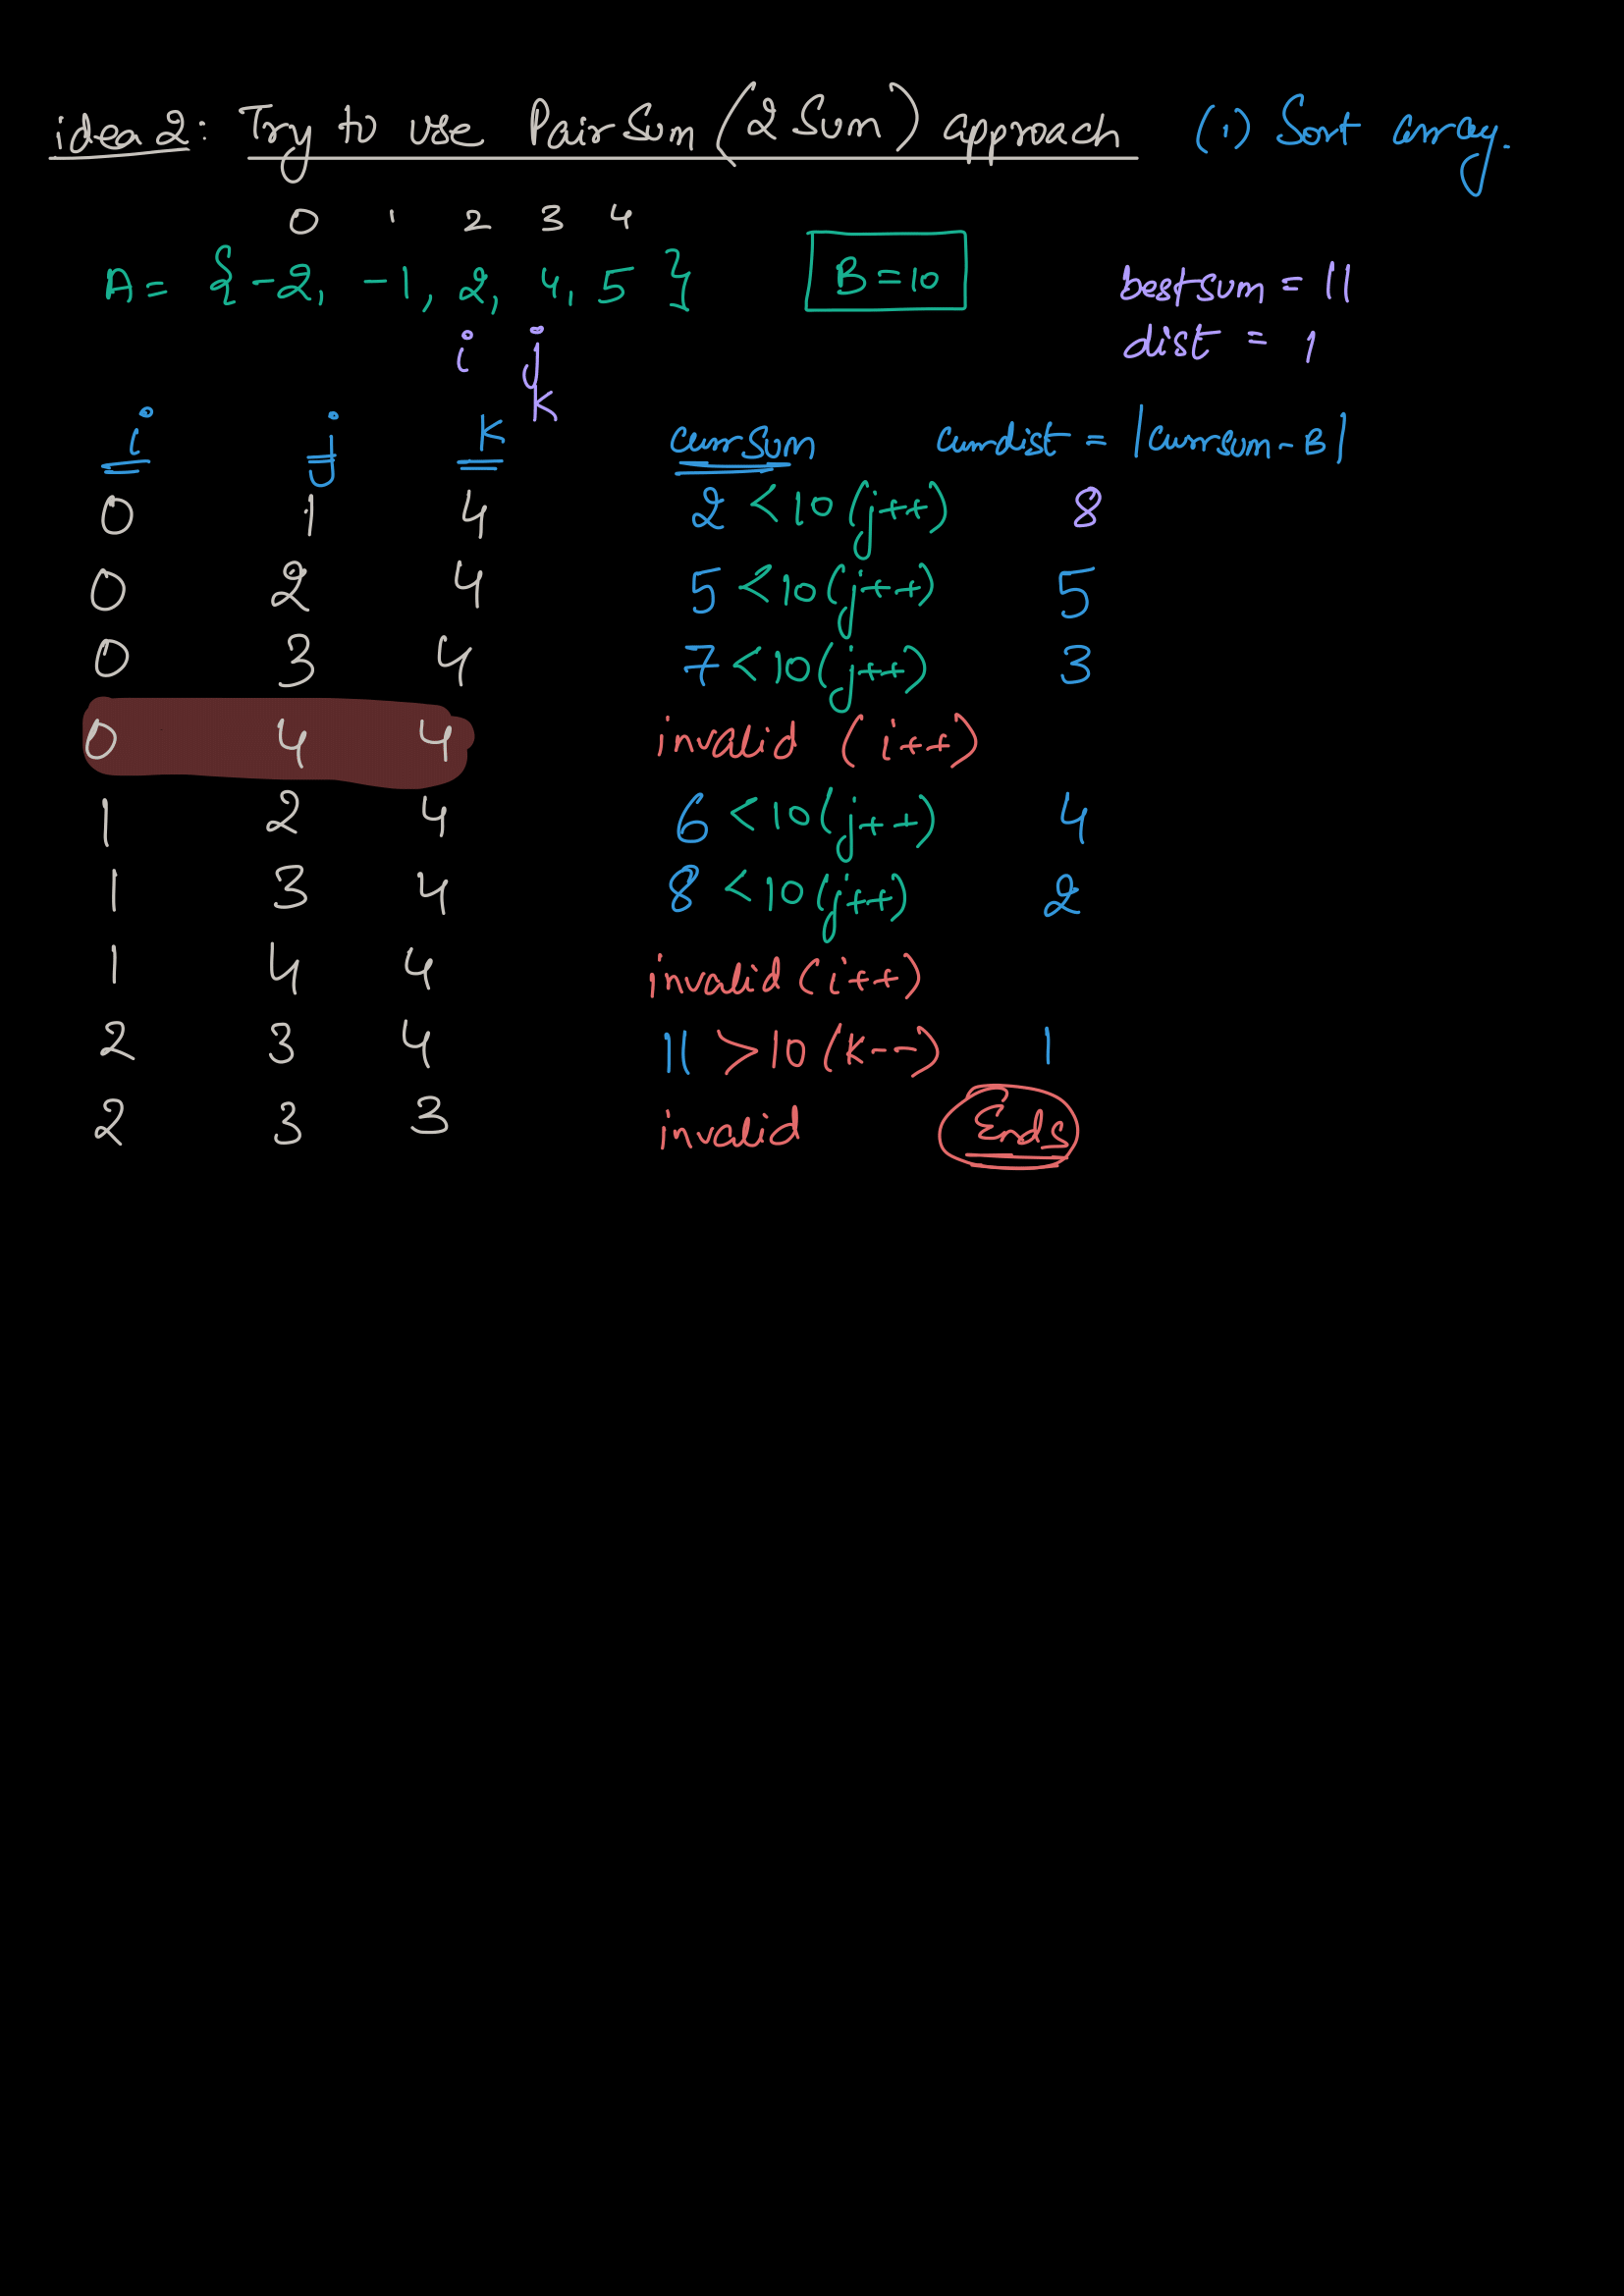 idea 2: Try to use PairSum (2 Sum) approach (1) Sort array.
0 1 2 3 4
A = {-2, -1, 2, 4, 5 } B=10 bestsum = 11
i j dist = 1
k
i j k currsum currdist = |currsum-B|
0 1 4 2 <10 (j++) 8
0 2 4 5 <10 (j++) 5
0 3 4 7 <10 (j++) 3
0 4 4 invalid (i++)
1 2 4 6 <10 (j++) 4
1 3 4 8 <10 (j++) 2
1 4 4 invalid (i++)
2 3 4 11 >10 (k--) 1
2 3 3 invalid Ends